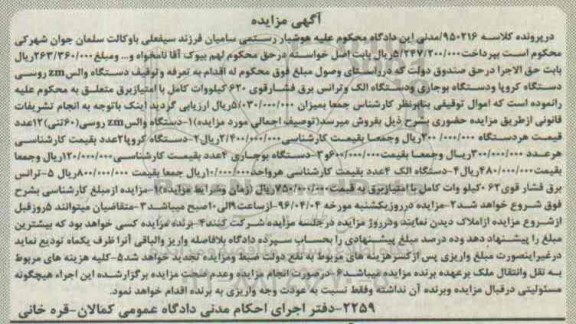 آگهی مزایده
درپرونده کلاسه ۹۵۰۲۱۶/مدنی این دادگاه محکوم علیه هوشیار رستمی سامیان فرزند سیفعلی باوکالت سلمان جوان شهرکی
محکوم است بپرداخت ۵/۲۴۷/۲۰۰/۰۰۰ریال بابت اصل خواسته درحق محکوم لهم بیوک آقا نامخواه و... ومبلغ ۲۶۳/۳۶۰/۰۰۰ریال
بابت حق الاجرا درحق صندوق دولت که درراستای وصول مبلغ فوق محکوم له اقدام به تعرفه وتوقیف دستگاه والس zm روسی
دستگاه کروپا ودستگاه بوجاری ودستگاه الک وترانس برق فشارقوی ۶۳۰ کیلووات کامل با امتیازبرق متعلق به محکوم علیه
رانموده است که اموال توقیفی بنابرنظر کارشناس جمعا بمیزان ۵/۰۳۰/۰۰۰/۰۰۰ریال ارزیابی گردید اینک باتوجه به انجام تشریفات
قانونی ازطریق مزایده حضوری بشرح ذیل بفروش میرسد(توصیف اجمالی مورد مزایده)۱-دستگاه والس zm روسی(۶۰تنی)۱۲عدد
قیمت هردستگاه ۲۰۰/۰۰۰/۰۰۰ریال وجمعا بقیمت کارشناسی ۲/۴۰۰/۰۰۰/۰۰۰ریال۲-دستگاه کروپا۲عدد بقیمت کارشناسی
هرعدد ۳۰۰/۰۰۰/۰۰۰ریال وجمعا بقیمت ۶۰۰/۰۰۰/۰۰۰و۳-دستگاه بوجاری ۴عدد بقیمت کارشناسی ۱۲۰/۰۰۰/۰۰۰ریال وجمعا
بقیمت ۴۸۰/۰۰۰/۰۰۰ریال۴-دستگاه الک ۴عدد بقیمت کارشناسی هرواحد ۱۰/۰۰۰/۰۰۰ریال جمعا بقیمت ۸۰۰/۰۰۰/۰۰۰ریال ۵-ترانس
برق فشار قوی ۶۳۰کیلو وات کامل با امتیازبرق به قیمت ۷۵۰/۰۰۰/۰۰۰ریال (زمان وشرایط مزایده)۱-مزایده ازمبلغ کارشناسی بشرح
فوق شروع خواهد شد۲-مزایده درروزیکشنبه مورخه ۹۶/۰۴/۰۴-ازساعت ۹الی۱۰صبح میباشد۳-متقاضیان میتوانند ۵روزقبل
ازشروع مزایده ازاملاک دیدن نمایند ودرروز مزایده درجلسه مزایده شرکت کنند۴-برنده مزایده کسی خواهد بود که بیشترین
مبلغ را پیشنهاد دهد وده درصد مبلغ پیشنهادی را بحساب سپرده دادگاه بلافاصله واریز والباقی آنرا ظرف یکماه تودیع نماید
درغیراینصورت مبلغ واریزی پس ازکسرهزینه های مربوط به نفع دولت ضبط ومزایده تجدید خواهد شد۵-کلیه هزینه های مربوط
به نقل وانتقال ملک برعهده برنده مزایده میباشد۶-درصورت انجام مزایده وعدم صحت مزایده برگزارشده این اجراء هیچگونه
مسئولیتی درقبال مزایده وبرنده آن نداشته وفقط نسبت به عودت وجه واریزی به برنده اقدام خواهد نمود.
۲۲۵۹-دفتر اجرای احکام مدنی دادگاه عمومی کمالان-قره خانی